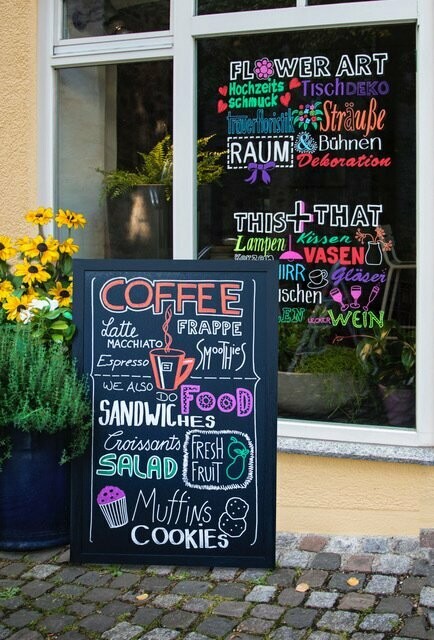 FLOWER ART
Hochzeits
schmuck
TischDEKO
Trauerfloristik
Sträuße
RAUM
& Bühnen
Dekoration
THIS + THAT
Lampen
Kissen
VASEN
Gläser
WEIN
COFFEE
Latte
MACCHIATO
FRAPPE
Espresso
SMOOTHIES
WE ALSO
DO
FOOD
SANDWICHES
Croissants
SALAD
FRESH
FRUIT
Muffins
COOKIES